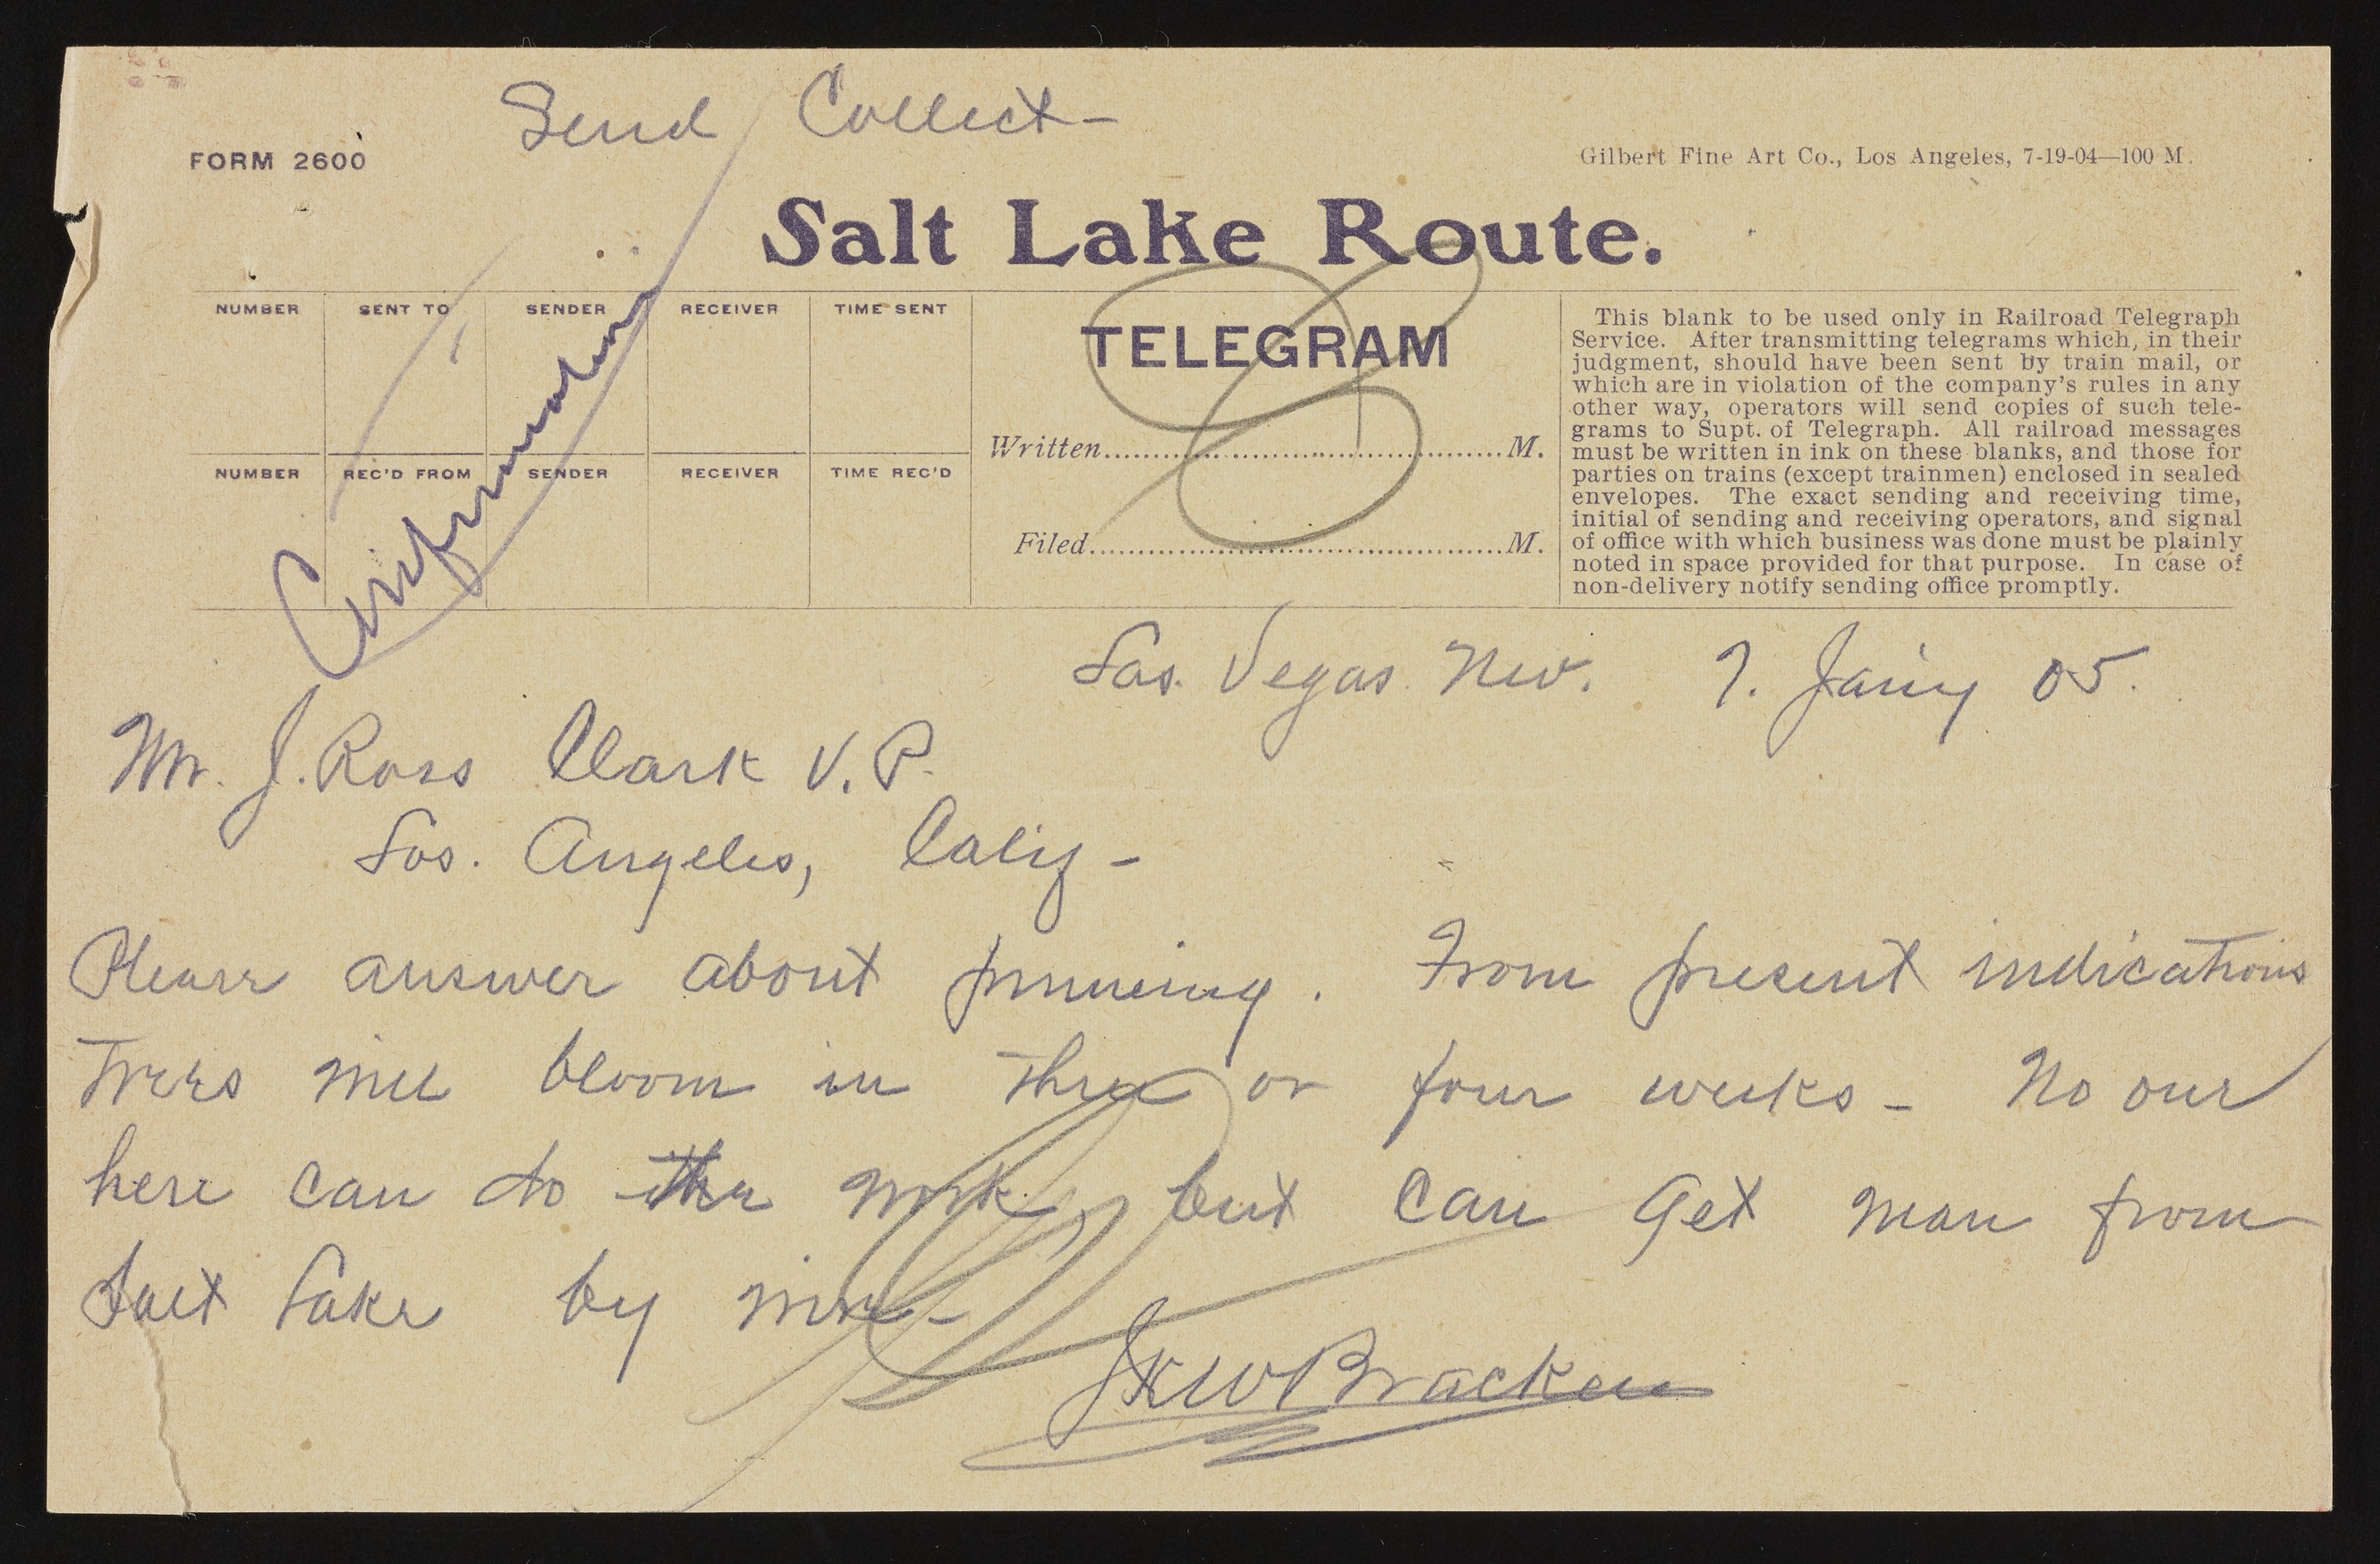 Send Collect -
FORM 2600
Gilbert Fine Art Co., Los Angeles, 7-19-04—100 M.
Salt Lake Route.
NUMBER SENT TO SENDER RECEIVER TIME SENT
NUMBER REC'D FROM SENDER RECEIVER TIME REC'D
Confirmation
TELEGRAM
Written M.
Filed M.
This blank to be used only in Railroad Telegraph
Service. After transmitting telegrams which, in their
judgment, should have been sent by train mail, or
which are in violation of the company's rules in any
other way, operators will send copies of such tele-
grams to Supt. of Telegraph. All railroad messages
must be written in ink on these blanks, and those for
parties on trains (except trainmen) enclosed in sealed
envelopes. The exact sending and receiving time,
initial of sending and receiving operators, and signal
of office with which business was done must be plainly
noted in space provided for that purpose. In case of
non-delivery notify sending office promptly.
Las Vegas Nev. 7. Jany 05.
Mr. J. Ross Clark V. P.
Los. Angeles, Calif -
Please answer about pruneing. From present indications
Trees will bloom in three or four weeks - No one
here can do the work, but can get man from
Salt Lake by wire -
J K W Bracken